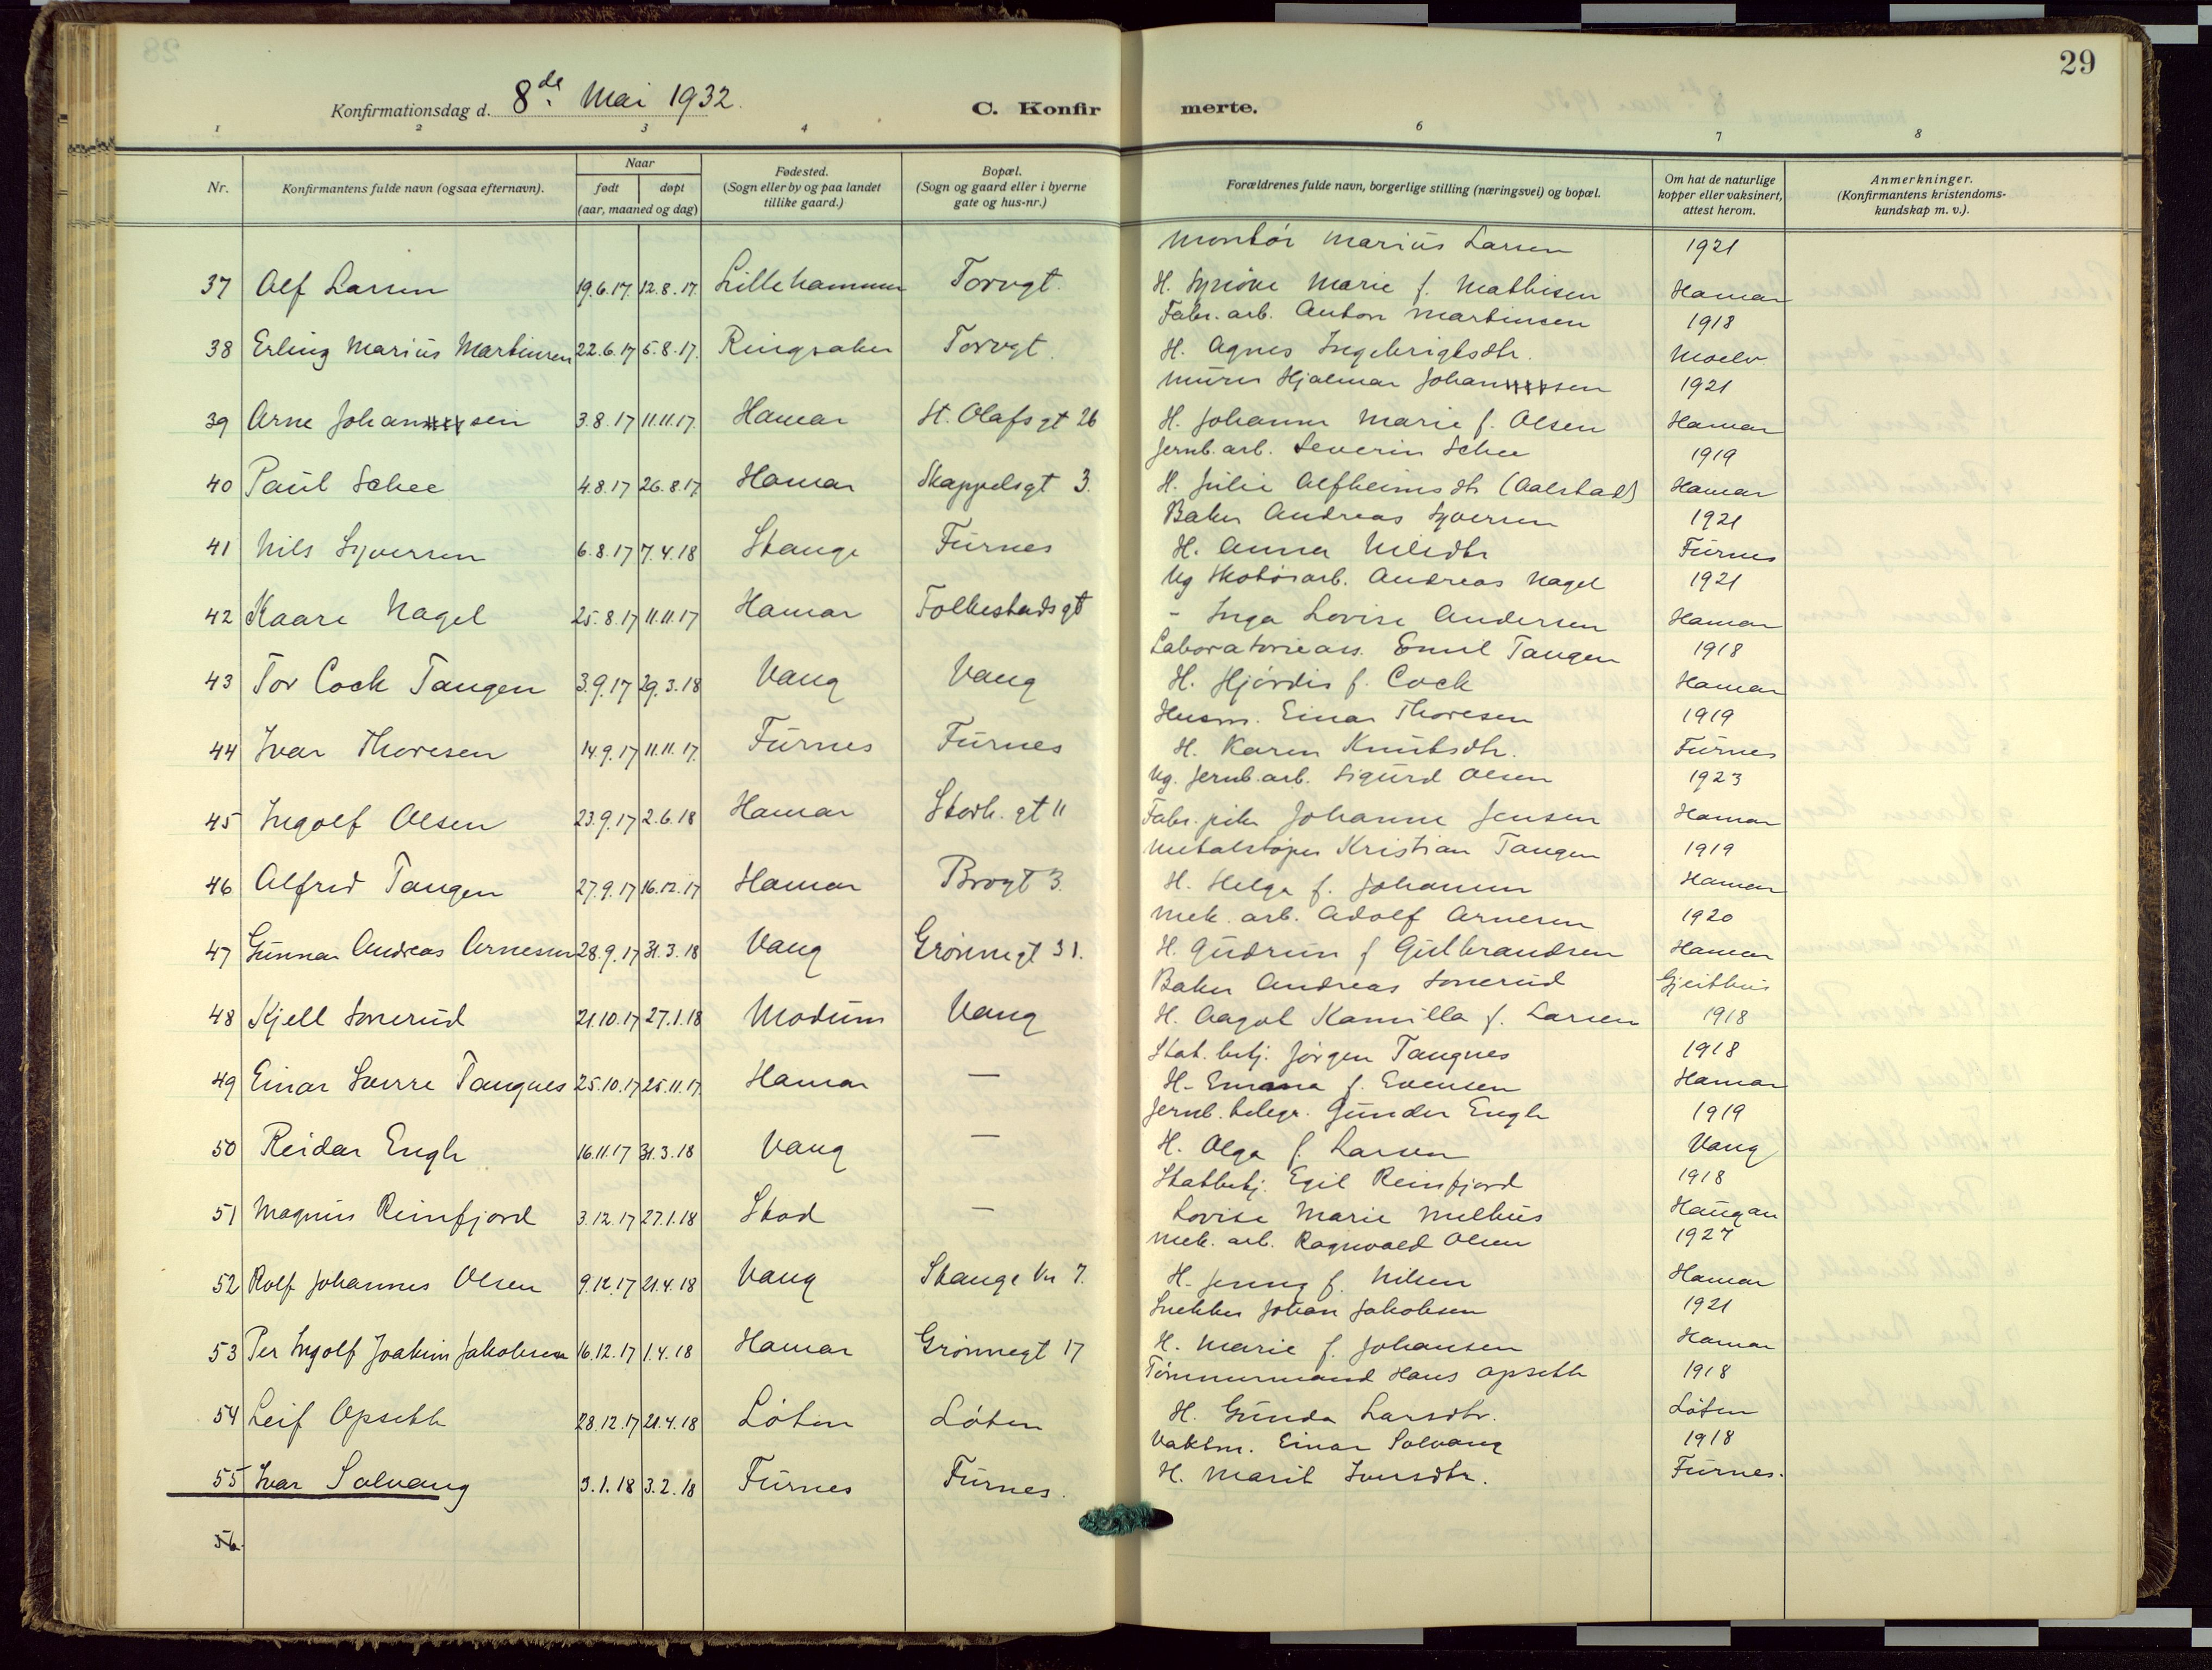 29
Konfirmationsdag d. 8de Mai 1932.
C. Konfirmerte.
1 2 3 4 6 7 8
Nr.
Konfirmantens fulde navn (ogsaa efternavn).
Naar
født døpt
(aar, maaned og dag)
Fødested.
(Sogn eller by og paa landet
tillike gaard.)
Bopæl.
(Sogn og gaard eller i byerne
gate og hus-nr.)
Forældrenes fulde navn, borgerlige stilling (næringsvei) og bopæl.
Om hat de naturlige
kopper eller vaksinert,
attest herom.
Anmerkninger.
(Konfirmantens kristendoms-
kundskap m. v.).
Montør Marius Larsen 1921
37 Alf Larsen 19.6.17. 12.8.17. Lillehammer Torvgt. H. Synøve Marie f. Mathisen Hamar
Fabr. arb. Anton Martinsen 1918
38 Erling Marius Martinsen 22.6.17 5.8.17. Ringsaker Torvgt. H. Agnes Ingebrigtsdtr. Moelv
Murer Hjalmar Johansen 1921
39 Arne Johansen 3.8.17 11.11.17. Hamar St. Olafsgt 26 H. Johanne Marie f. Olsen Hamar
Jernb. arb. Severin Schee 1919
40 Paul Schee 4.8.17 26.8.17 Hamar Skappelsgt 3. H. Julie Alfheimsdtr (Aalstad) Hamar
Baker Andreas Syversen 1921
41 Nils Syversen 6.8.17 7.4.18 Stange Furnes H. Anna Nilsdtr Furnes
Ug Skotøiarb. Andreas Nagel 1921
42 Kaare Nagel 25.8.17 11.11.17 Hamar Folkestadsgt - Inga Lovise Andersen Hamar
Laboratorieass. Emil Tangen 1918
43 Tor Cock Tangen 3.9.17 29.3.18 Vang Vang H. Hjørdis f. Cock Hamar
Husm. Einar Thoresen 1919
44 Ivar Thoresen 14.9.17 11.11.17. Furnes Furnes H. Karen Knutsdtr. Furnes
Ug. Jernb.arb. Sigurd Olsen 1923
45 Ingolf Olsen 23.9.17 2.6.18 Hamar Storh.gt 11 Fabr. pike Johanne Jensen Hamar
Metalstøper Kristian Tangen 1919
46 Alfred Tangen 27.9.17 16.12.17 Hamar Brogt 3. H. Helga f. Johansen Hamar
Mek. arb. Adolf Arnesen 1920
47 Gunnar Andreas Arnesen 28.9.17 31.3.18 Vang Grønnegt 31. H. Gudrun f Gulbrandsen Hamar
Baker Andreas Sonerud Gjeithus
48 Kjell Sonerud 21.10.17 27.1.18 Modum Vang H. Aagot Kamilla f. Larsen 1918
Stat. betj. Jørgen Tangnes 1918
49 Einar Sverre Tangnes 25.10.17 25.11.17. Hamar — H. Emma f. Evensen Hamar
Jernb. telegr. Gunder Engh 1919
50 Reidar Engh 16.11.17 31.3.18 Vang — H. Olga f. Larsen Vang
Statbetj. Egil Reinfjord 1918
51 Magnus Reinfjord 3.12.17 27.1.18 Stod — Lovise Marie Melhus Haugan
Mek. arb. Ragnvald Olsen 1927
52 Rolf Johannes Olsen 9.12.17 21.4.18 Vang Stange Vn 7. H. Jenny f. Nilsen Hamar
Snekker Johan Jakobsen 1921
53 Per Ingolf Joakim Jakobsen 16.12.17 1.4.18 Hamar Grønnegt 17 H. Marie f. Johansen Hamar
Tømmermand Hans Opseth 1918
54 Leif Opseth 28.12.17 21.4.18 Løten Løten H. Gunda Larsdtr. Løten
Vaktm. Einar Solvang 1918
55 Ivar Solvang 3.1.18 3.2.18 Furnes Furnes. H. Marit Iversdtr. Furnes.
56.